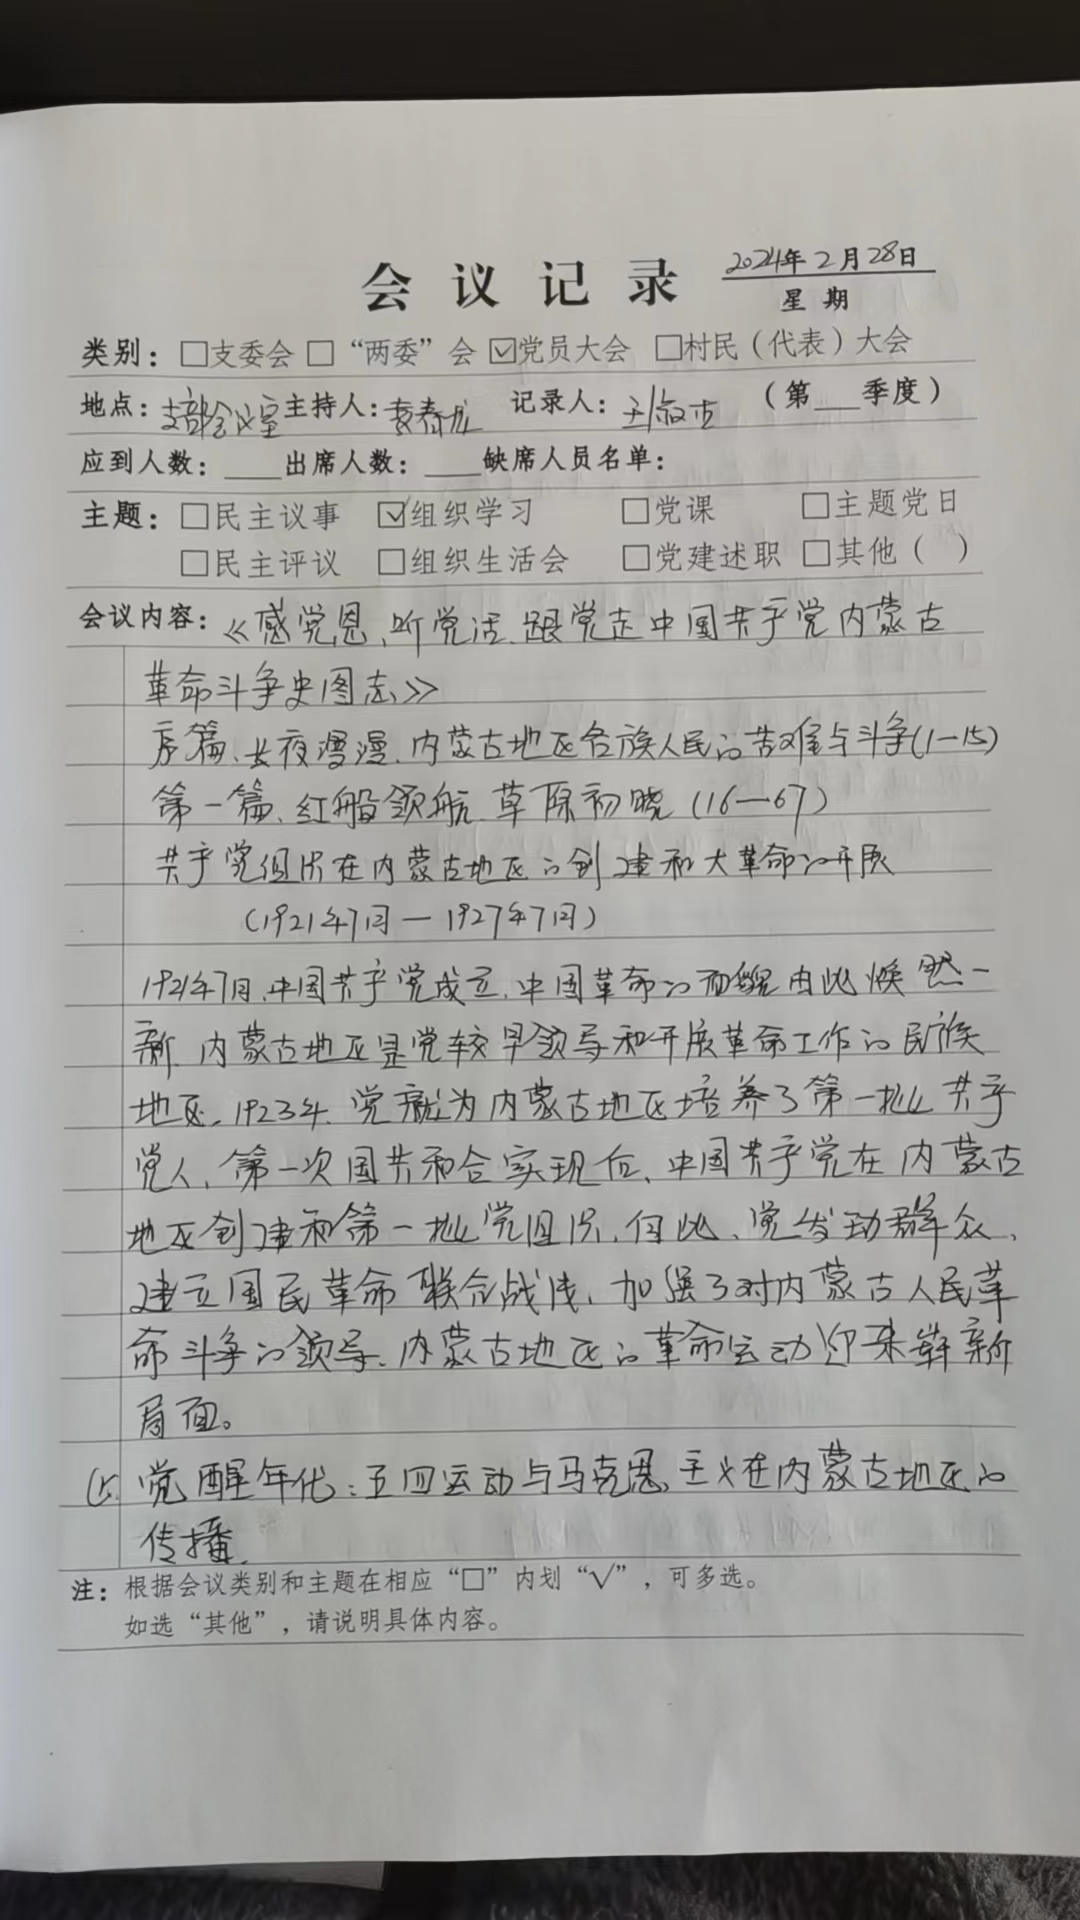 2024年2月28日
会议记录
星期
类别：□支委会 □“两委”会 ☑党员大会 □村民（代表）大会
地点：支部会议室 主持人： 记录人： （第___季度）
应到人数：____出席人数：____缺席人员名单：
主题：□民主议事 ☑组织学习 □党课 □主题党日
□民主评议 □组织生活会 □党建述职 □其他（ ）
会议内容：《感党恩、听党话、跟党走中国共产党内蒙古
革命斗争史图志》
序篇、长夜漫漫、内蒙古地区各族人民的苦难与斗争(1—15)
第一篇、红船领航、草原初晓(16—67)
共产党组织在内蒙古地区的创建和大革命的开展
(1921年7月—1927年7月)
1921年7月、中国共产党成立、中国革命的面貌由此焕然一
新、内蒙古地区是党较早领导和开展革命工作的民族
地区。1923年、党就为内蒙古地区培养了第一批共产
党人、第一次国共和合实现后、中国共产党在内蒙古
地区创建和第一批党组织、何此、党发动群众、
建立国民革命联合战线、加强了对内蒙古人民革
命斗争的领导、内蒙古地区的革命运动迎来崭新
局面。
(一). 觉醒年代：五四运动与马克思主义在内蒙古地区的
传播.
注：根据会议类别和主题在相应“□”内划“√”，可多选。
如选“其他”，请说明具体内容。